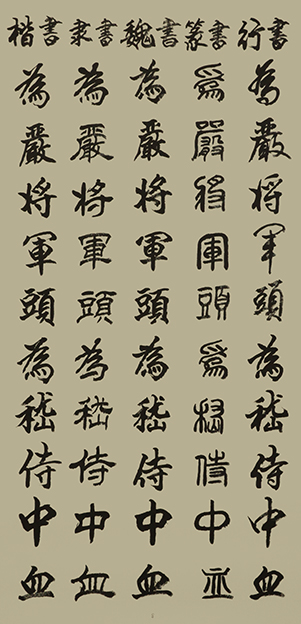 楷書 隶書 魏書 篆書 行書
為嚴将軍頭為嵇侍中血
為嚴将軍頭為嵇侍中血
為嚴将軍頭為嵇侍中血
為嚴将軍頭為嵇侍中血
為嚴将軍頭為嵇侍中血